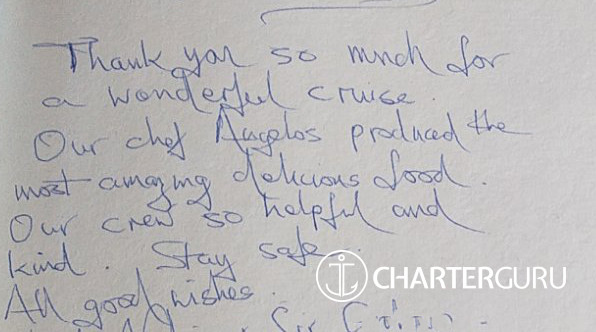 Thank you so much for
a wonderful cruise.
Our chef Angelos produced the
most amazing delicious food.
Our crew so helpful and
kind. Stay safe.
All good wishes.
CHARTERGURU